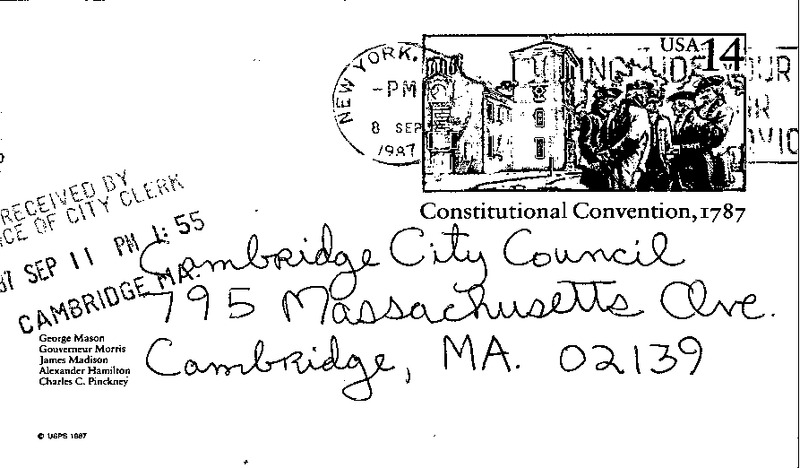 NEW YORK,
-PM
8 SEP
1987
USA 14
INCLUDE YOUR
Constitutional Convention, 1787
RECEIVED BY
CE OF CITY CLERK
87 SEP 11 PM 1:55
CAMBRIDGE MA.
Cambridge City Council
795 Massachusetts Ave.
Cambridge, MA. 02139
George Mason
Gouverneur Morris
James Madison
Alexander Hamilton
Charles C. Pinckney
© USPS 1987